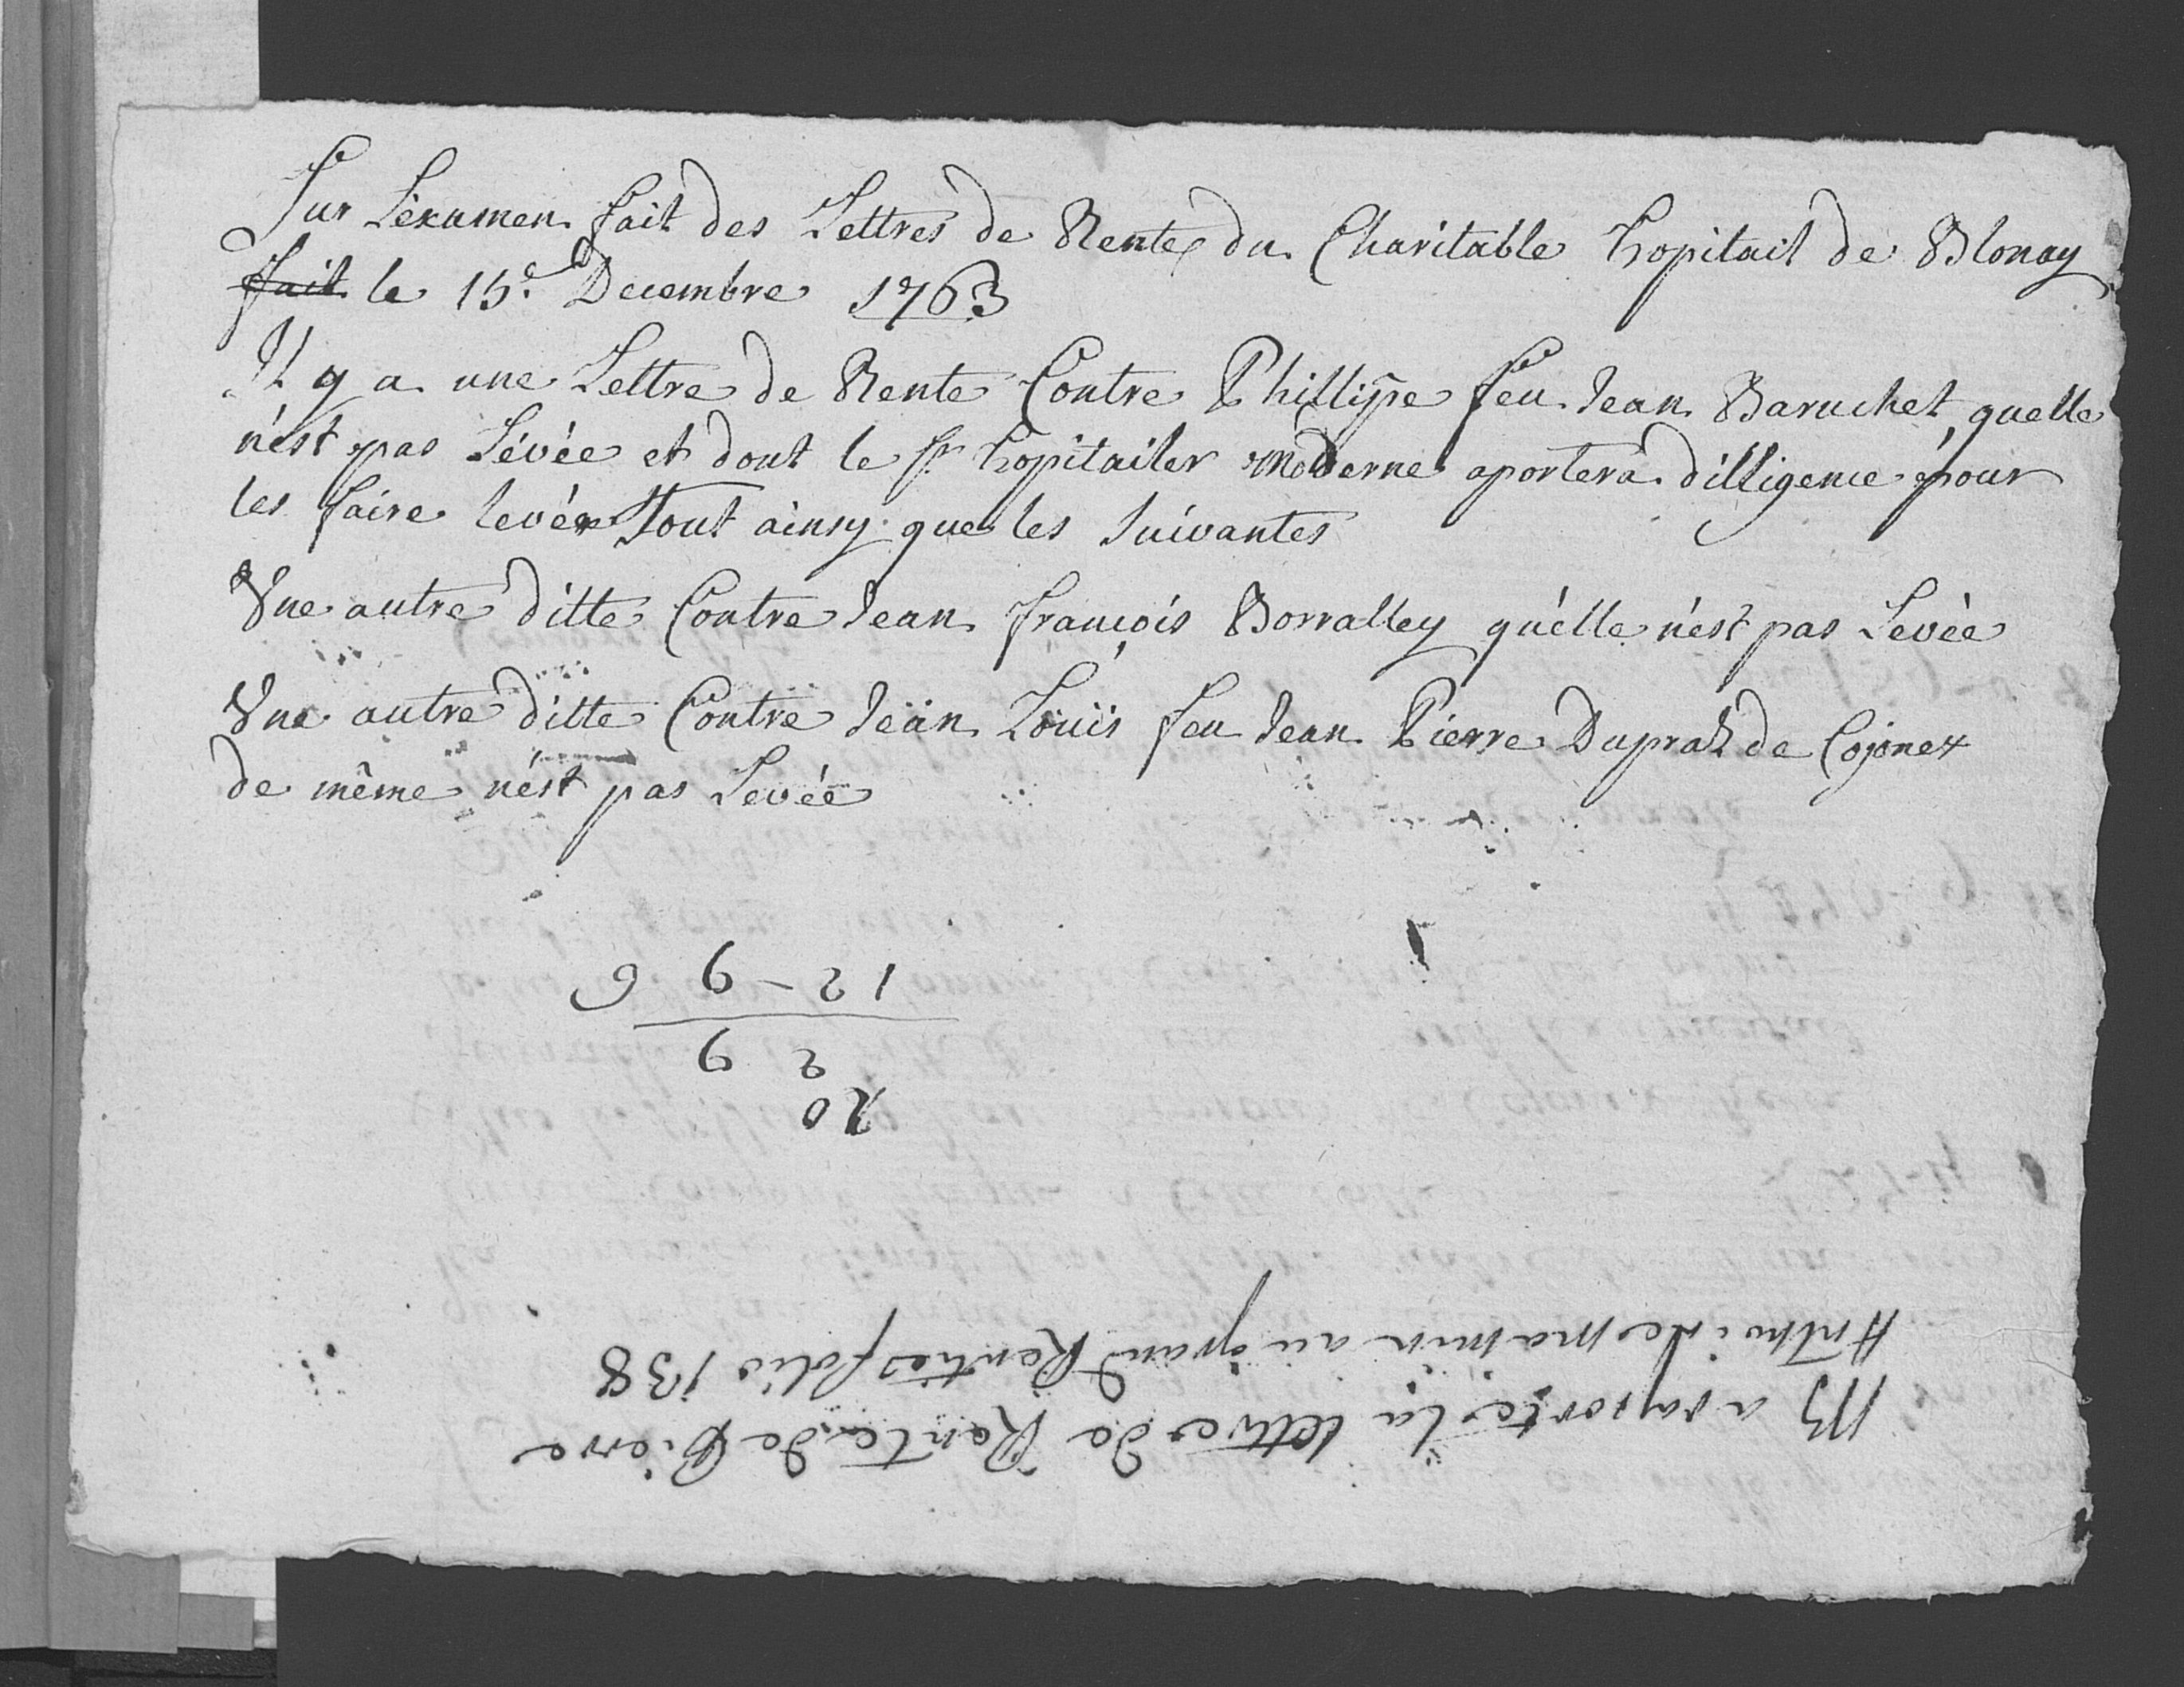 Sur L'éxamen fait des Lettres de Rente du Charitable hopitail de Blonay
fait le 15.e Decembre 1763
Il y a une Lettre de Rente Contre Phillippe feu Jean Baruchet, quelle
n'ést pas Lévée et dont le Sr. hopitailer moderne aportera dilligence pour
les faire levér Tout ainsy que les Suivantes
Une autre ditte Contre Jean François Borralley qu'élle n'ést pas Levée
Une autre ditte Contre Jean Louis feu Jean Pierre Dupraz de Cojonex
de même n'ést pas Levée
NB a raporter la lettre de Rente de Pierre
mamin au grand Rentier folio 138
20
2 9
12 - 9 6